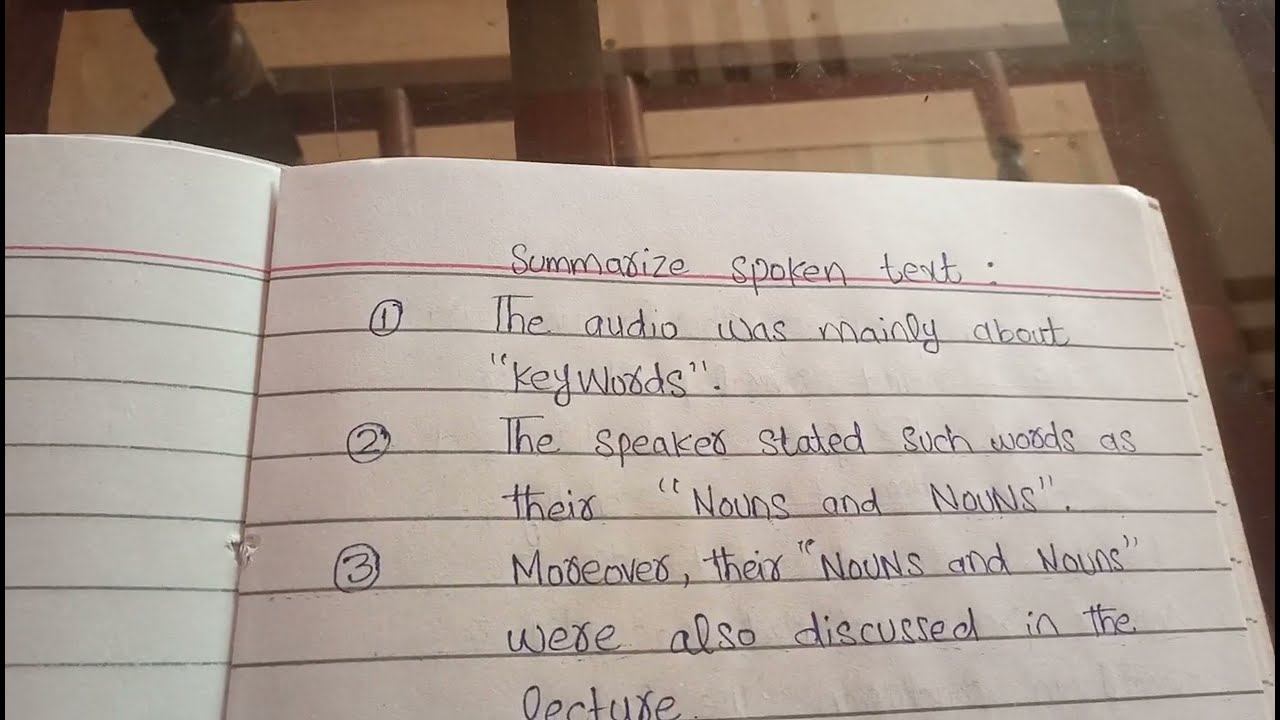 Summarize spoken text :
① The audio was mainly about
"keywords".
② The speaker stated such words as
their "Nouns and Nouns".
③ Moreover, their "Nouns and Nouns"
were also discussed in the
lecture.